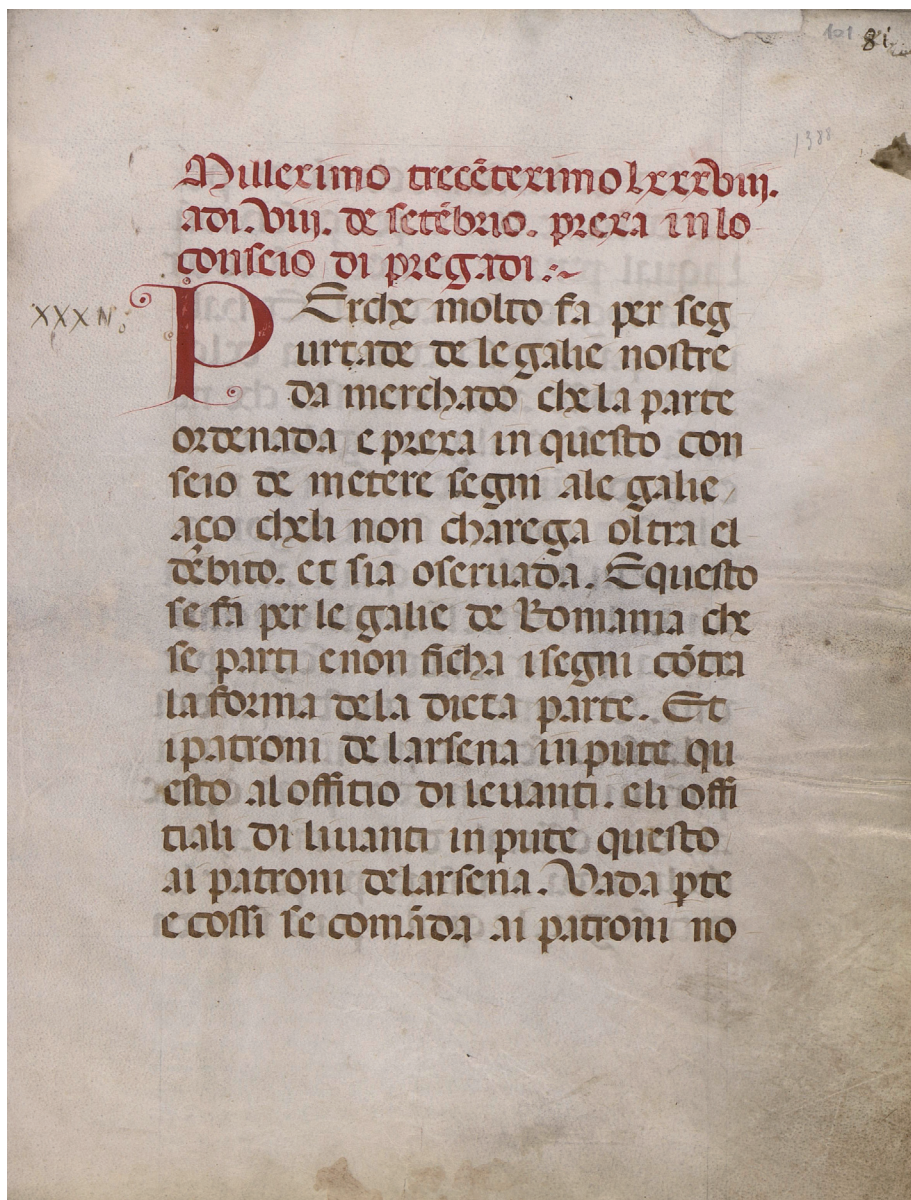 101 81
1388
Milleximo trecēteximo lxxxviii.
adi. viii. de setēbrio. prexa in lo
conseio di pregadi :~
PErche molto fa per seg
urtade de le galie nostre
da merchado che la parte
ordenada e prexa in questo con
seio de metere segni ale galie
aço cheli non charega oltra el
debito. et sia oseruada. E questo
se fa per le galie de Romania che
se parti e non ficha i segni cōtra
la forma de la dicta parte. Et
i patroni de larsena in pute qu
esto al officio di leuanti. e li offi
tiali di liuanti in pute questo
ai patroni de larsena. Vada ꝑte
e cossi se comāda ai patroni no